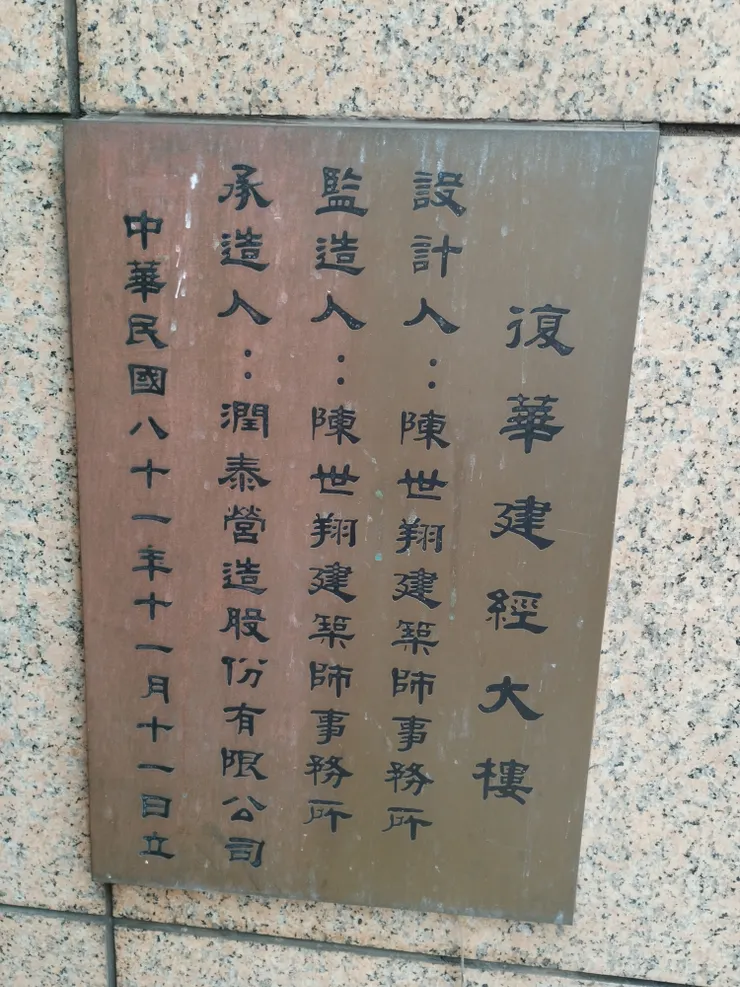 復華建經大樓
設計人：陳世翔建築師事務所
監造人：陳世翔建築師事務所
承造人：潤泰營造股份有限公司
中華民國八十一年十一月十一日立